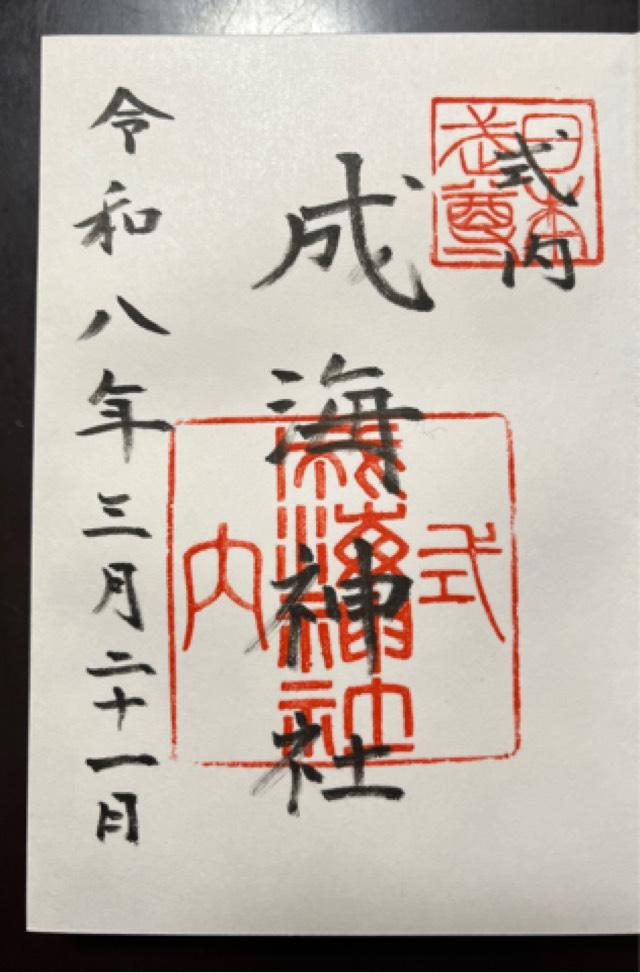 式内
日本武尊
成海神社
式内
成海神社
令和八年三月二十一日